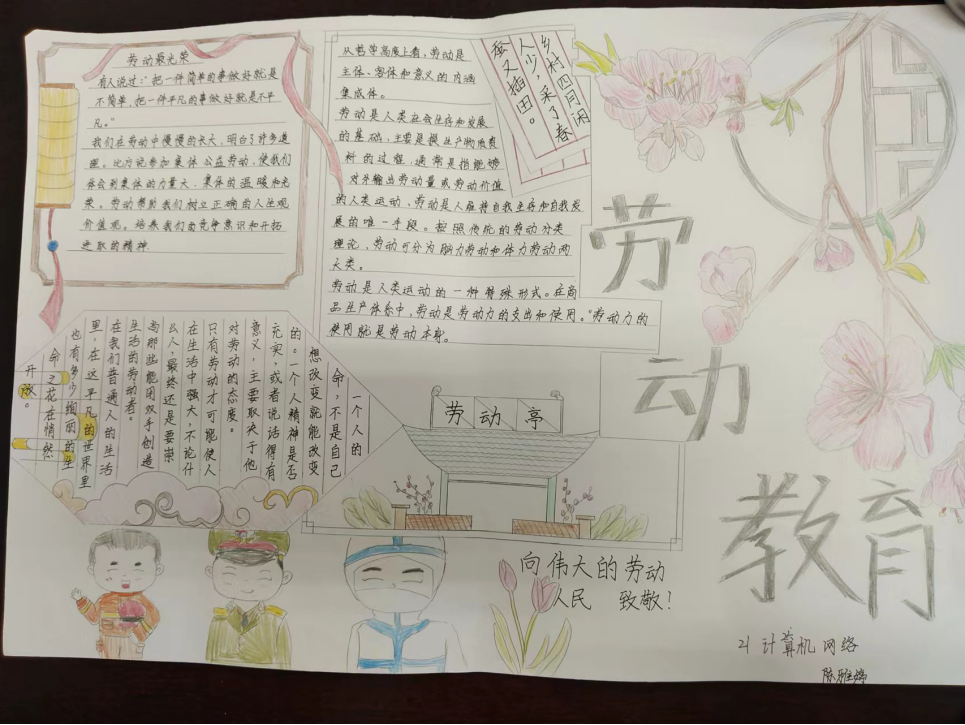 劳动最光荣
有人说过：“把一件简单的事做好就是
不简单，把一件平凡的事做好就是不平
凡。”
我们在劳动中慢慢的长大，明白了许多道
理。比方说参加集体公益劳动，使我们
体会到集体的力量大，集体的温暖和光
荣。劳动帮助我们树立正确的人生观
价值观。培养我们的竞争意识和开拓
进取的精神
从哲学高度上看，劳动是
主体、客体和意义的内涵
集成体。
劳动是人类社会生存和发展
的基础，主要是指生产物质资
料的过程，通常是指能够
对外输出劳动量或劳动价值
的人类运动，劳动是人维持自我生存和自我发
展的唯一手段。按照传统的劳动分类
理论，劳动可分为脑力劳动和体力劳动两
大类。
劳动是人类运动的一种特殊形式。在商
品生产体系中，劳动是劳动力的支出和使用。“劳动力的
使用就是劳动本身。
乡村四月闲
人少，采了春
蚕又插田。
一个人的
命，不是自己
想改变就能改变
的。一个人精神是否
充实或者说话得有
意义，主要取决于他
对劳动的态度。
只有劳动才可能使人
在生活中强大，不论什
么人，最终还是要崇
尚那些能用双手创造
生活的劳动者。
在我们普通人的生活
里，在这平凡的世界里
也有多少绚丽的生
命之花在悄然
开放。
劳动亭
劳
动
教育
向伟大的劳动
人民 致敬！
21计算机网络
陈雅婷